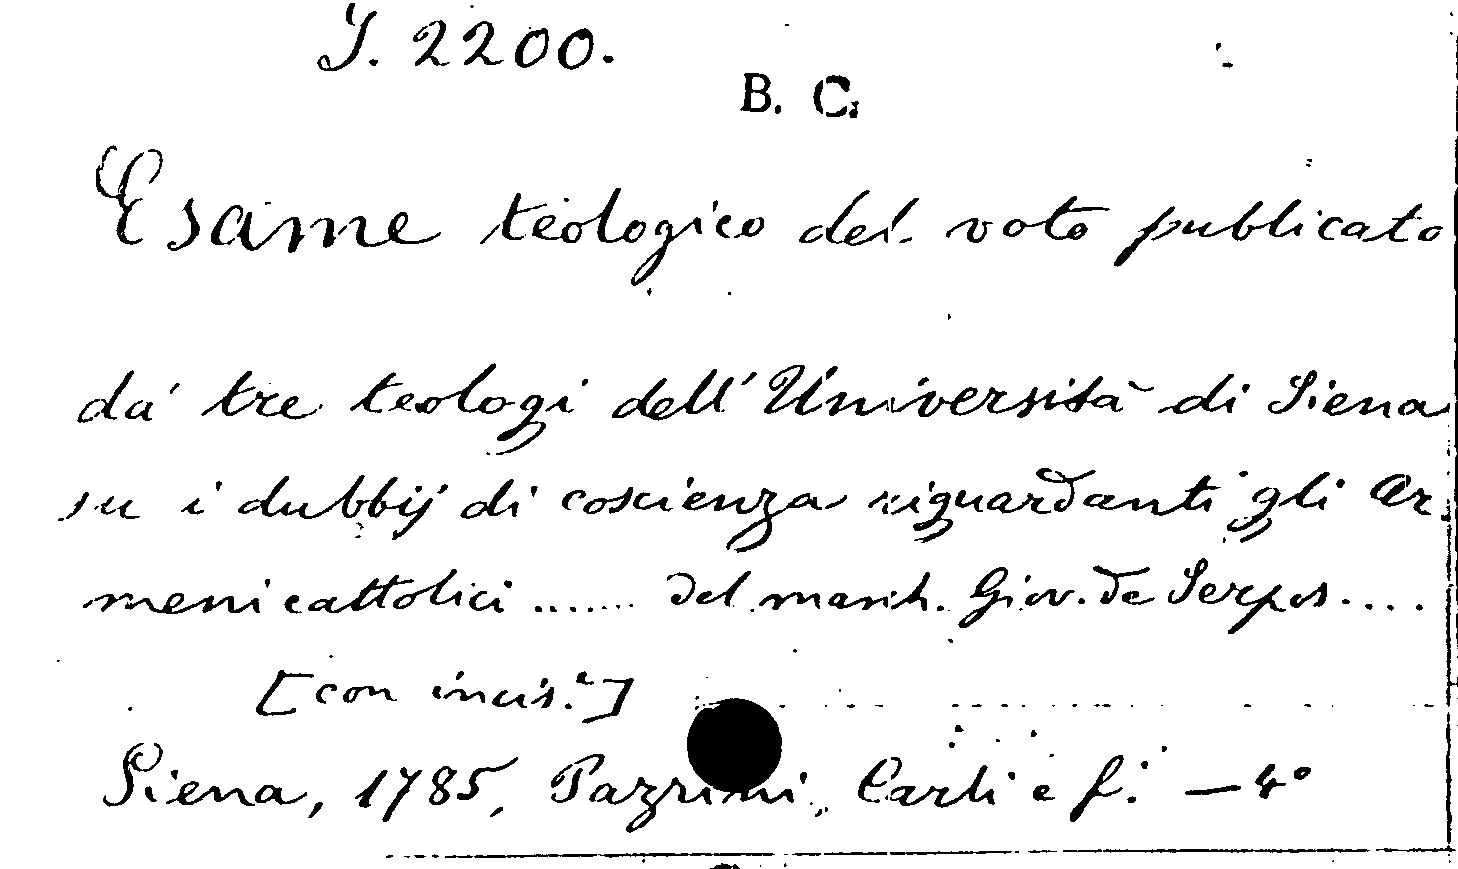 I. 2200.
B. C.
Esame teologico del voto publicato
da' tre teologi dell'Università di Siena
su i dubbij di coscienza riguardanti gli Ar-
meni cattolici ...... del march. Giov. de Serpos ....
[con incis.e]
Siena, 1785, Pazzini, Carli e f.i — 4°